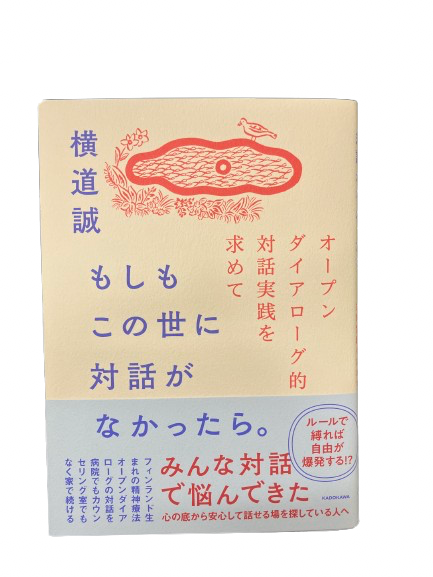 横道誠
オープン
ダイアローグ的
対話実践を
求めて
もしも
この世に
対話が
なかったら。
ルールで
縛れば
自由が
爆発する!?
みんな対話
で悩んできた
心の底から安心して話せる場を探している人へ
KADOKAWA
フィンランド生
まれの精神療法
オープンダイア
ローグの対話を
病院でもカウン
セリング室でも
なく家で続ける